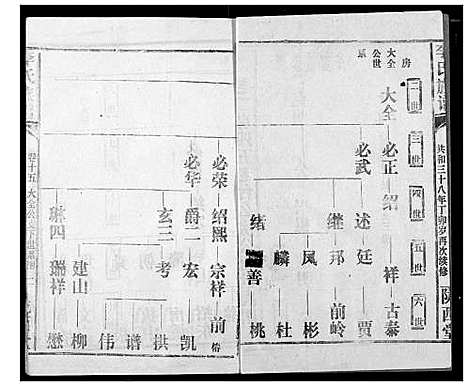 李氏族譜
共和三十八年丁卯岁再次续修
隴西堂
房
大全
公世
系
二世
三世
四世
五世
六世
大全 必正 绍 祥 古泰
必武 述 廷 贾
继 邦 前岭
凤 彬
麟 杜
绪 善 桃
必荣 绍熙 宗祥 前
必华 爵二 宏 凯
玄三 考 拱
谱
伟
建山 柳
琳四 瑞祥 懋
李氏
卷十五 大全公